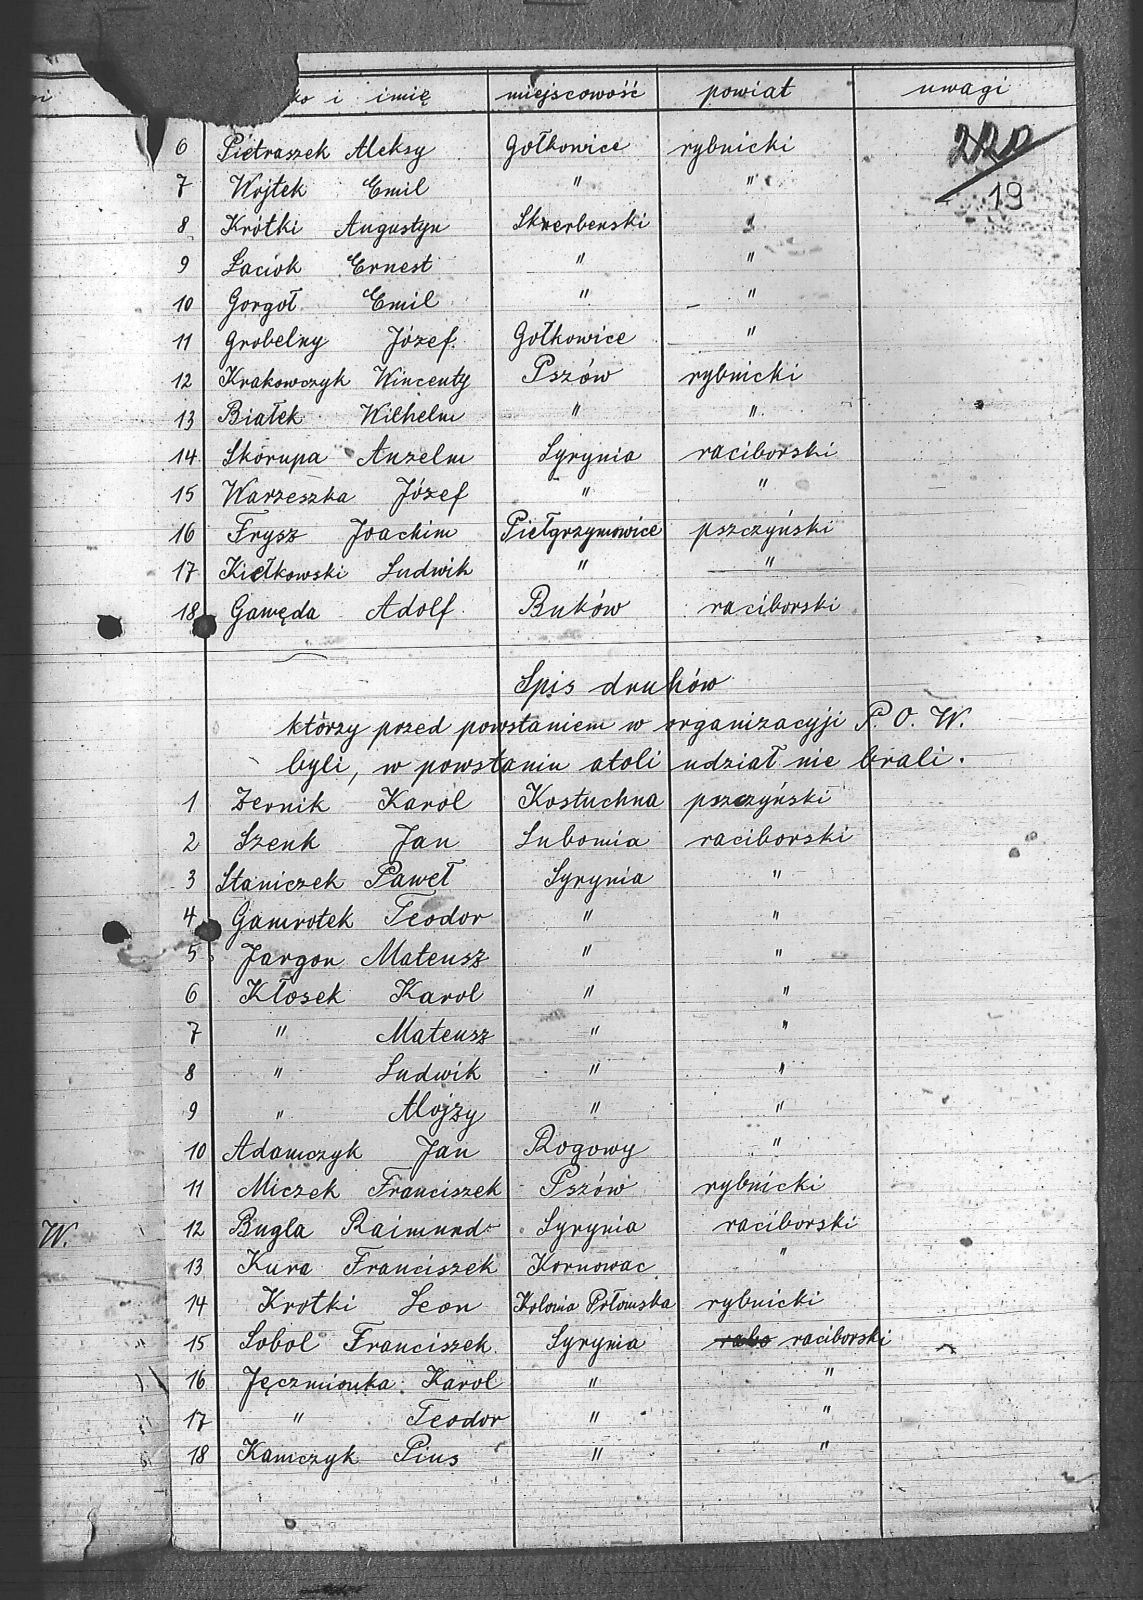 ko i imię miejscowość powiat uwagi
220
19
6 Pietraszek Aleksy Gołkowice rybnicki
7 Wojtek Emil " "
8 Krótki Augustyn Skrerbenski "
9 Łaciok Ernest " "
10 Gorgoł Emil " "
11 Grobelny Józef. Gołkowice "
12 Krakowczyk Wincenty Pszów rybnicki
13 Białek Wilhelm " "
14 Skorupa Anzelm Syrynia raciborski
15 Warzeszka Józef " "
16 Frysz Joachim Piełgrzymowice pszczyński
17 Kiełkowski Ludwik " "
18 Gawęda Adolf. Buków raciborski
Spis druhów
którzy przed powstaniem w organizacyji P. O. W.
byli, w powstaniu atoli udział nie brali.
1 Żernik Karol Kostuchna pszczyński
2 Szenk Jan Lubomia raciborski
3 Staniczek Paweł Syrynia "
4 Gamrotek Teodor " "
5 Jargon Mateusz " "
6 Kłosek Karol " "
7 " Mateusz " "
8 " Ludwik " "
9 " Alojzy " "
10 Adamczyk Jan Rogowy "
11 Miczek Franciszek Pszów rybnicki
W. 12 Bugla Raimund Syrynia raciborski
13 Kura Franciszek Kornowac "
14 Krotki Leon Kolonia Połomska rybnicki
15 Sobol Franciszek Syrynia raciborski
16 Jęczmionka Karol " "
17 " Teodor " "
18 Kamczyk Pius " "